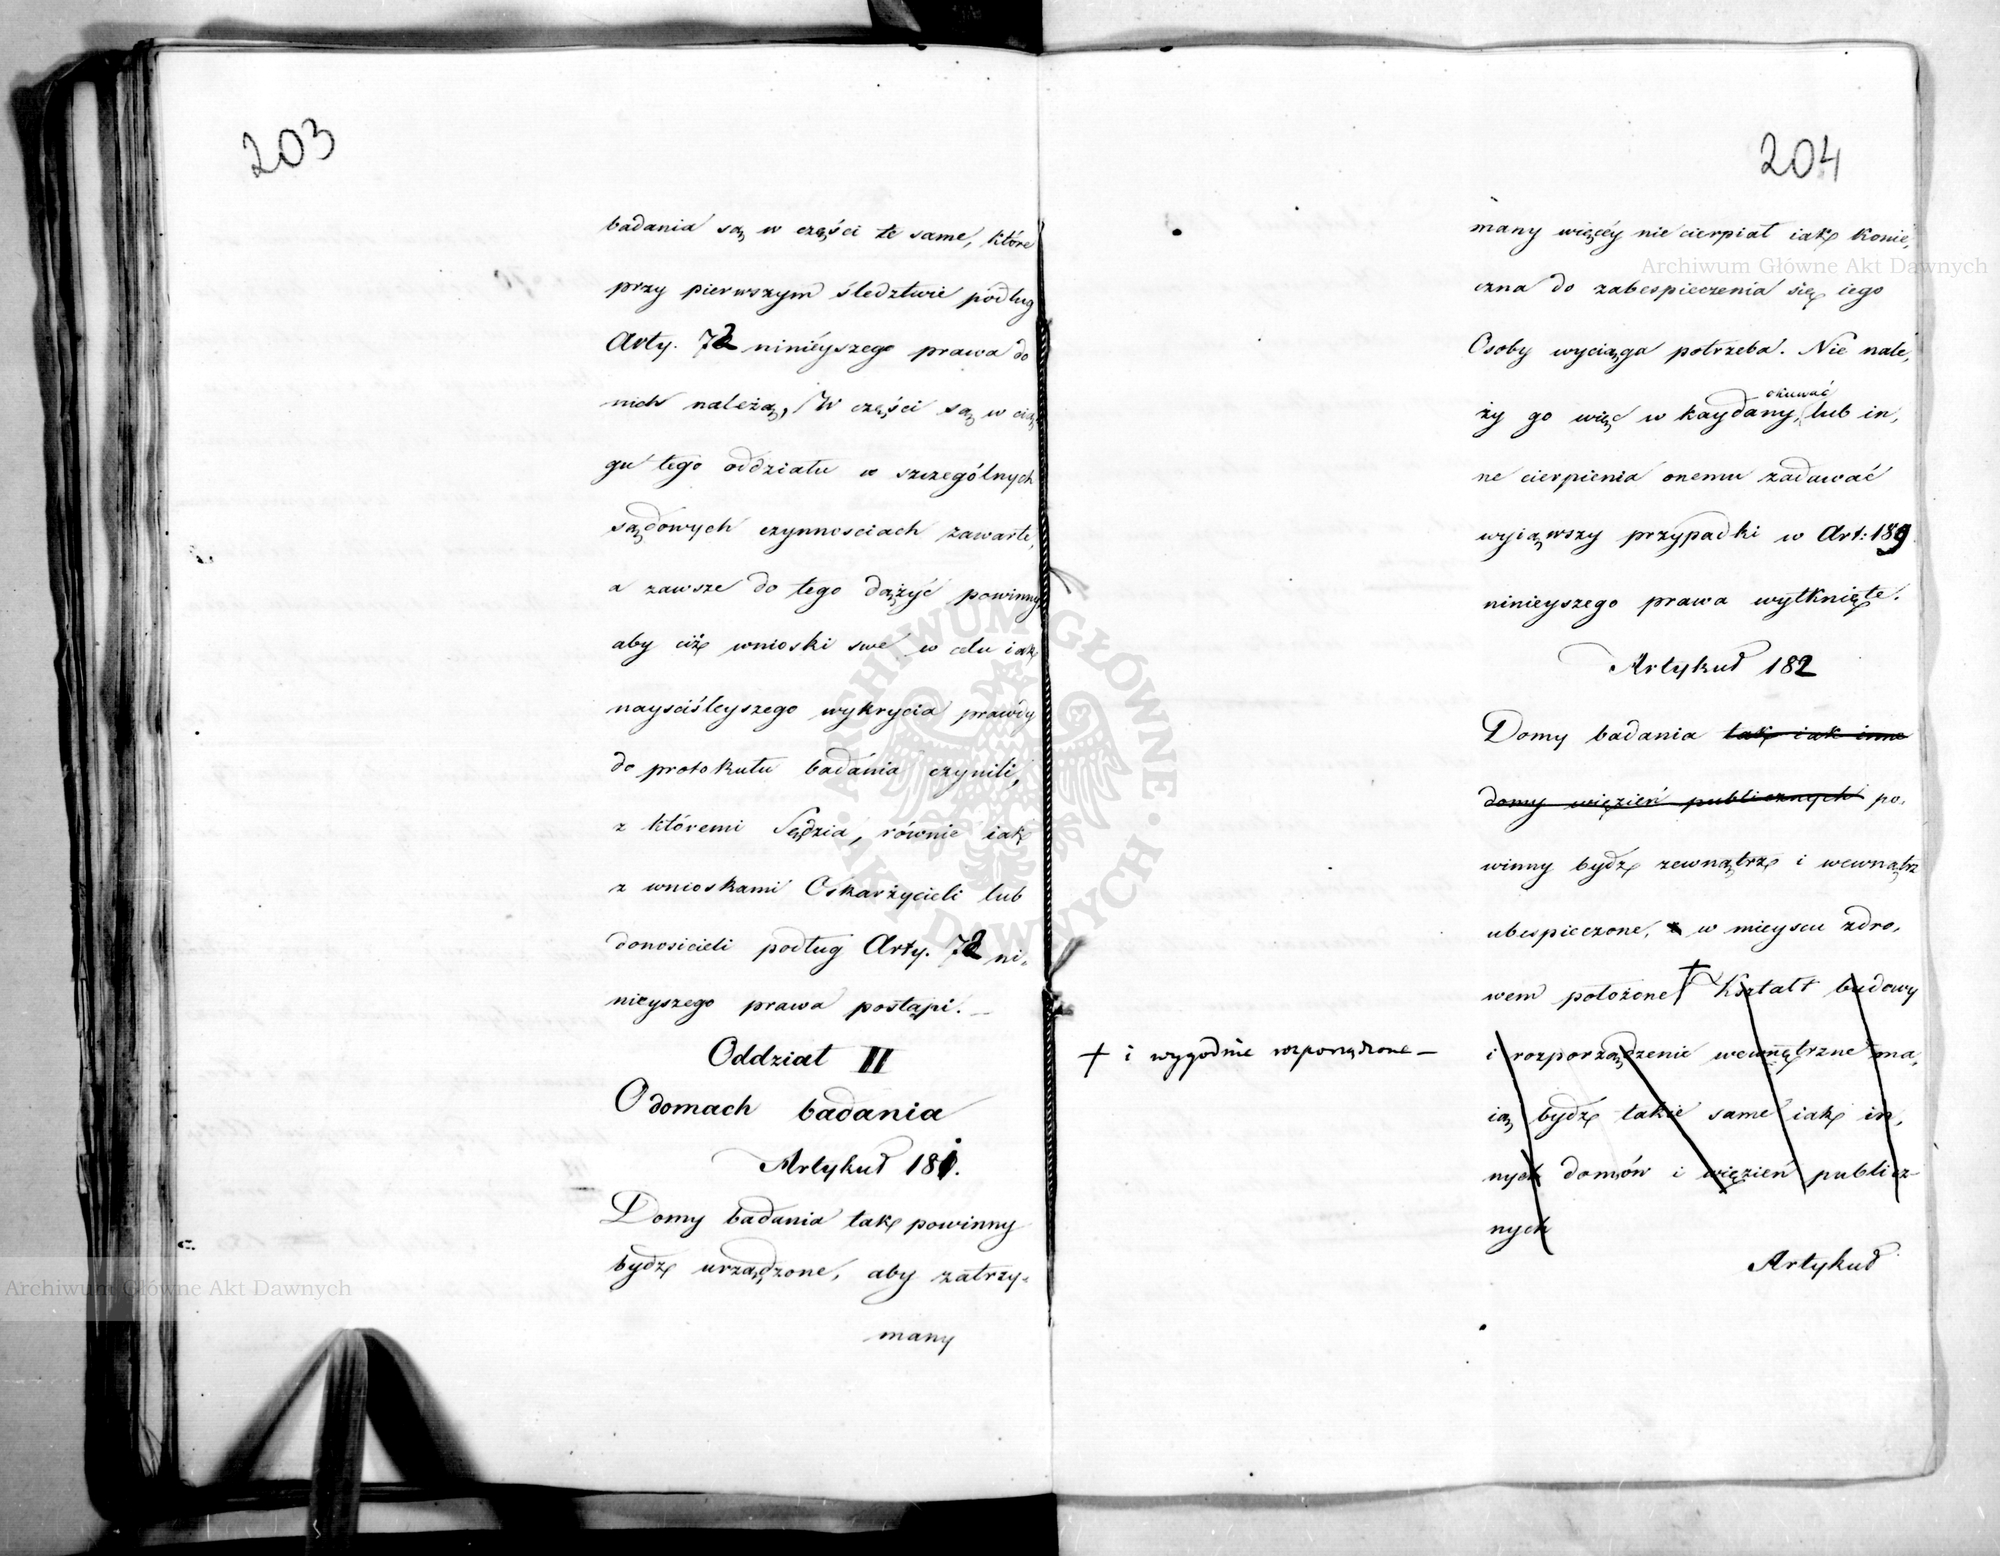 203
badania są w części te same, które
przy pierwszym śledztwie podług
Arty. 72 ninieyszego prawa do
nich należą, W części są w cią
gu tego oddziału w szczególnych
sądowych czynnosciach zawarte,
a zawsze do tego dążyć powinny
aby ciż wnioski swe w celu iak
nayściśleyszego wykrycia prawdy
do protokułu badania czynili,
z któremi Sędzia, równie iak
z wnioskami Oskarżycieli lub
donosicieli podług Arty. 72 ni-
nieyszego prawa postąpi. –
Oddział II
O domach badania
Artykuł 181.
Domy badania tak powinny
bydź urządzone, aby zatrzy-
many
204
many więcéy nie cierpiał iak konie,
czna do zabespieczenia się iego
Osoby wyciąga potrzeba. Nie nale,
okuwać
ży go więc w kaydany, lub in,
ne cierpienia onemu zadawać
wyiąwszy przypadki w Art: 189
ninieyszego prawa wytknięte.
Artykuł 182
Domy badania tak iak inne
domy więzień publicznych po,
winny bydź zewnątrz i wewnątrz
ubespieczone, w mieyscu zdro,
wem położone + Kształt budowy
+ i wygodnie rozporządzone –
i rozporządzenie wewnętrzne ma,
ią bydź takie same iak in,
nych domów i więzień publicz-
nych
Artykuł
Archiwum Główne Akt Dawnych
Archiwum Główne Akt Dawnych
ARCHIWUM GŁÓWNE · AKT DAWNYCH ·